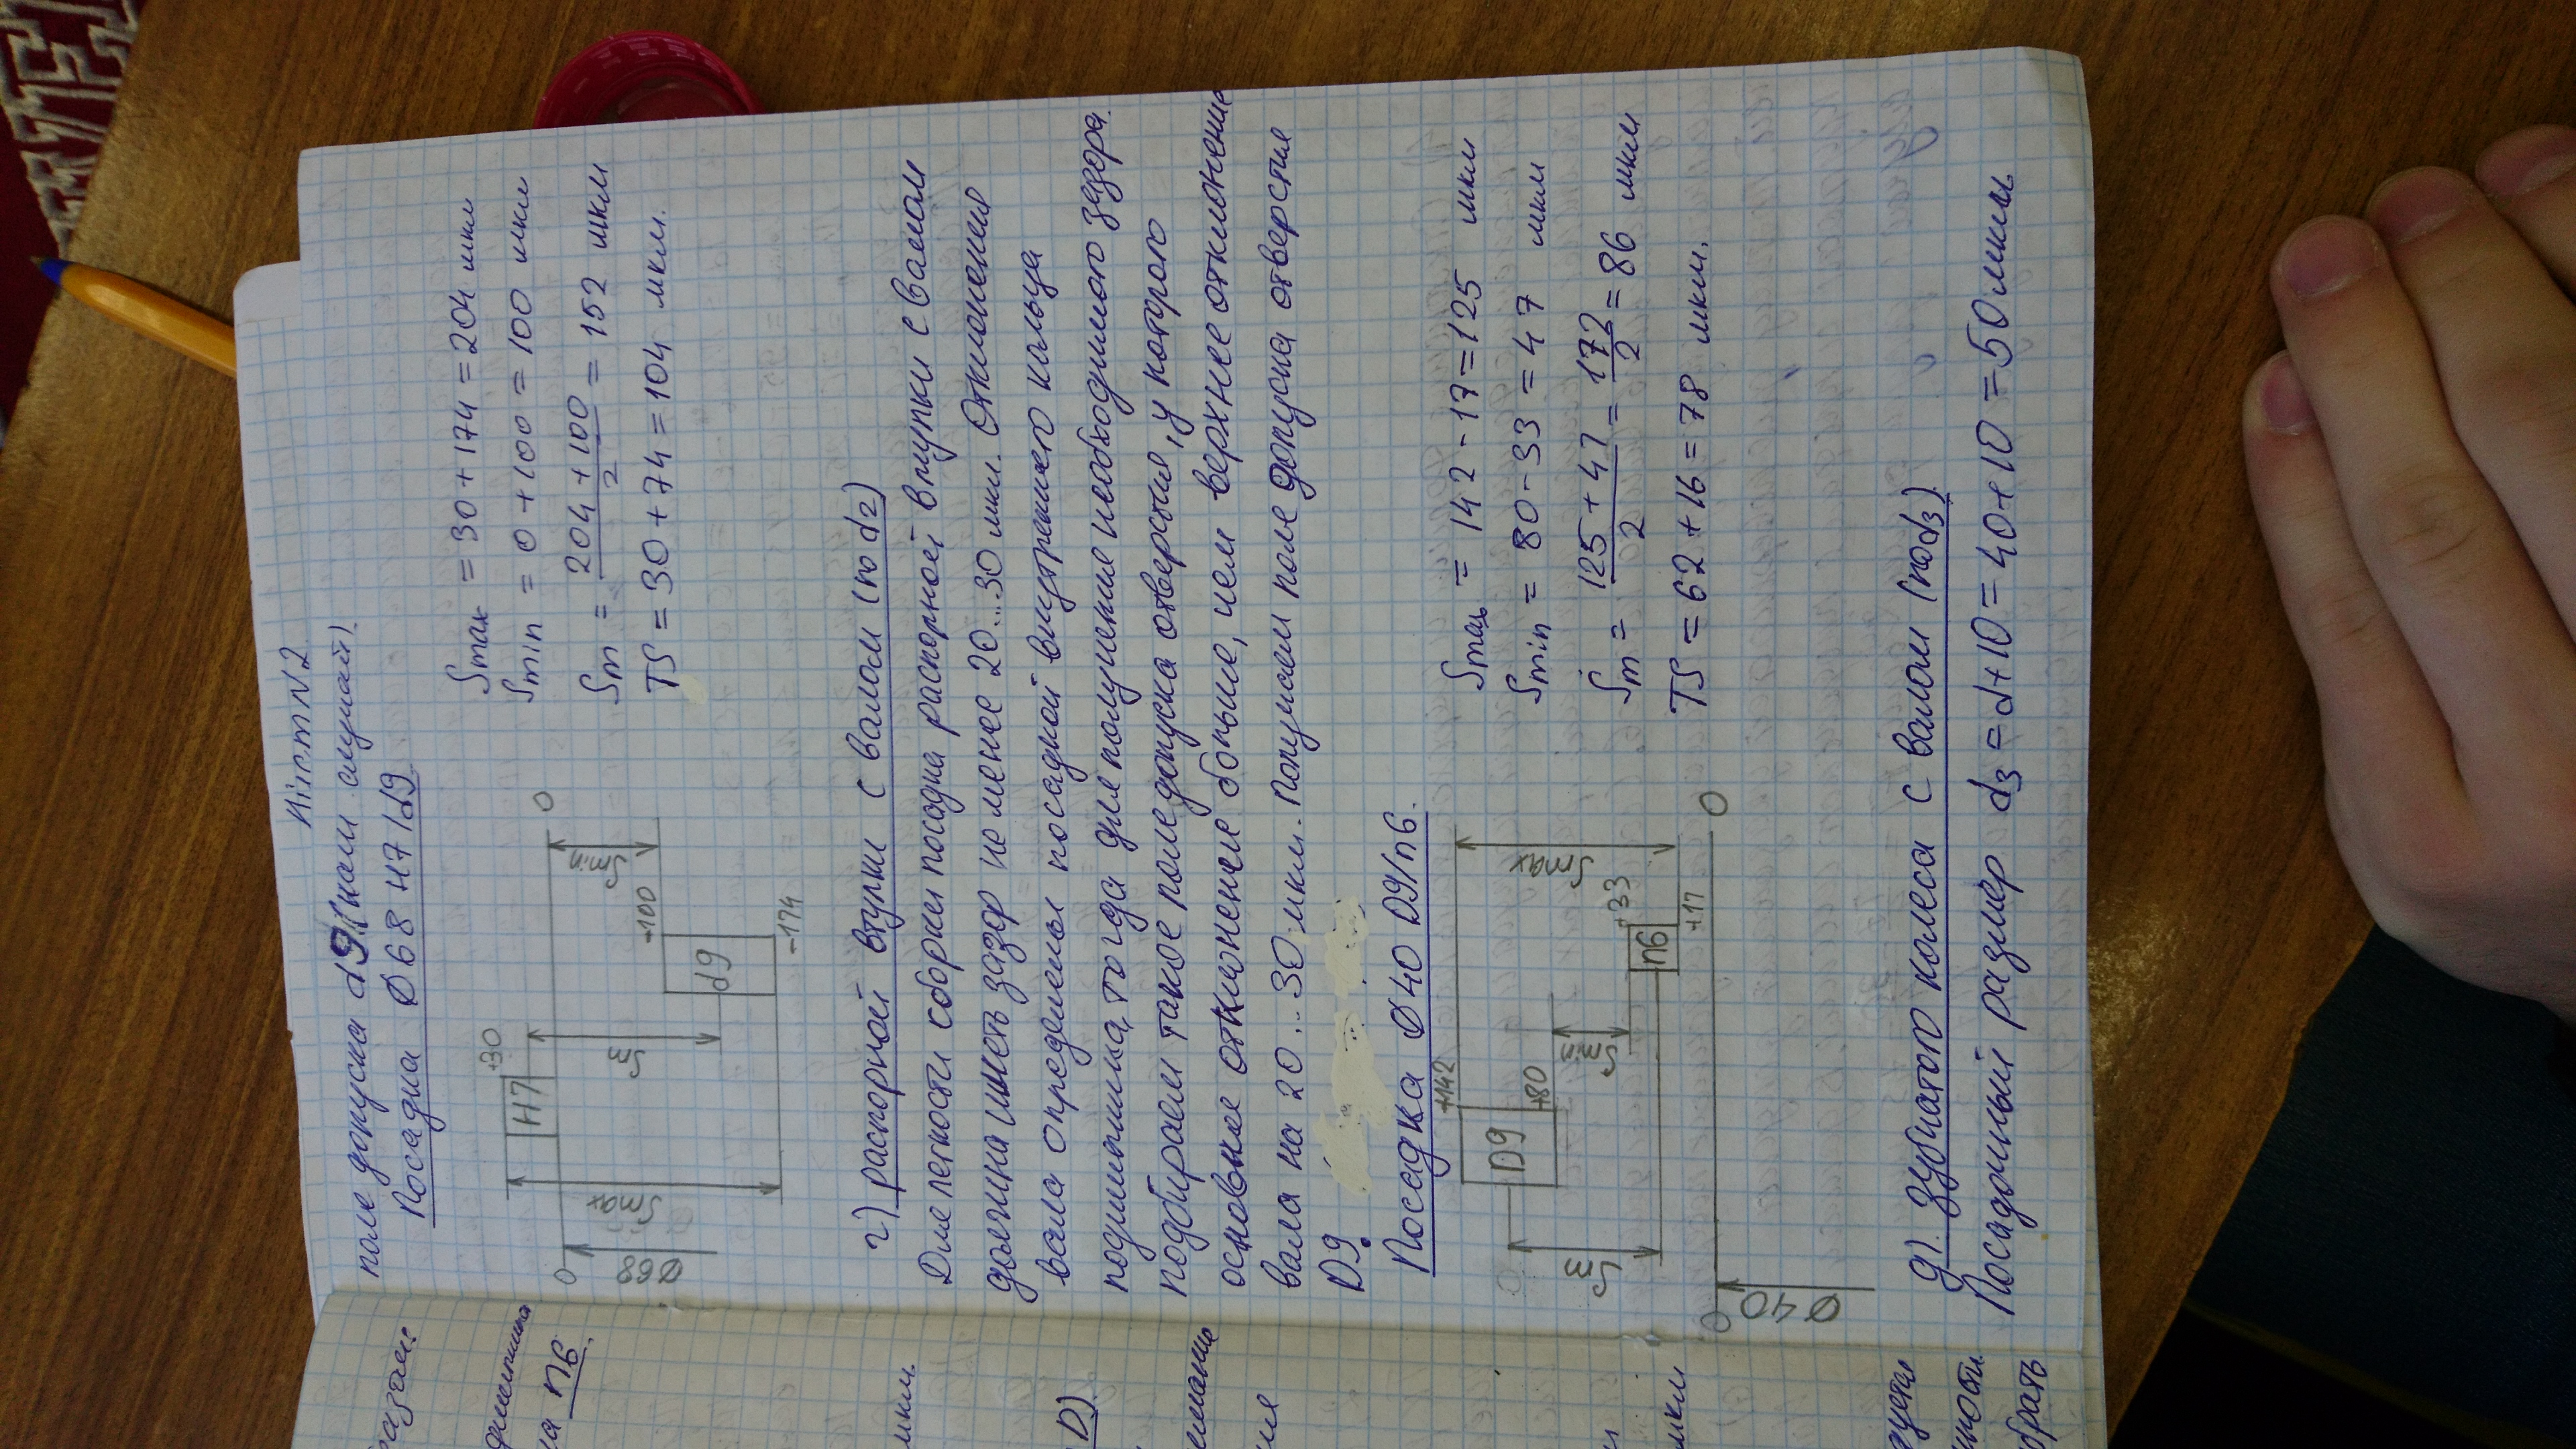 Лист N2
поле допуска d9 (наш случай).
Посадка Ø68 H7/d9
Smax = 30 + 174 = 204 мкм
Smin = 0 + 100 = 100 мкм
Sm = (204 + 100)/2 = 152 мкм
TS = 30 + 74 = 104 мкм.
+30
H7
0
0
Ø68
Smax
Sm
Smin
-100
d9
-174
г) распорной втулки с валом (по d2)
Для легкости сборки посадка распорной втулки с валом
должна иметь зазор не менее 20...30 мкм. Отклонения
вала определены посадкой внутреннего кольца
подшипника, тогда для получения необходимого зазора
подбираем такое поле допуска отверстия, у которого
основное отклонение больше, чем верхнее отклонение
вала на 20...30 мкм. Получаем поле допуска отверстия
D9.
Посадка Ø40 D9/n6.
Smax = 142 - 17 = 125 мкм
Smin = 80 - 33 = 47 мкм
Sm = (125 + 47)/2 = 172/2 = 86 мкм
TS = 62 + 16 = 78 мкм.
+142
D9
+80
Sm
Smin
Smax
+33
n6
+17
0
0
Ø40
д). зубчатого колеса с валом (по d3).
Посадочный размер d3 = d+10 = 40+10 = 50 мкм
n6
мкм.
D)
мкм